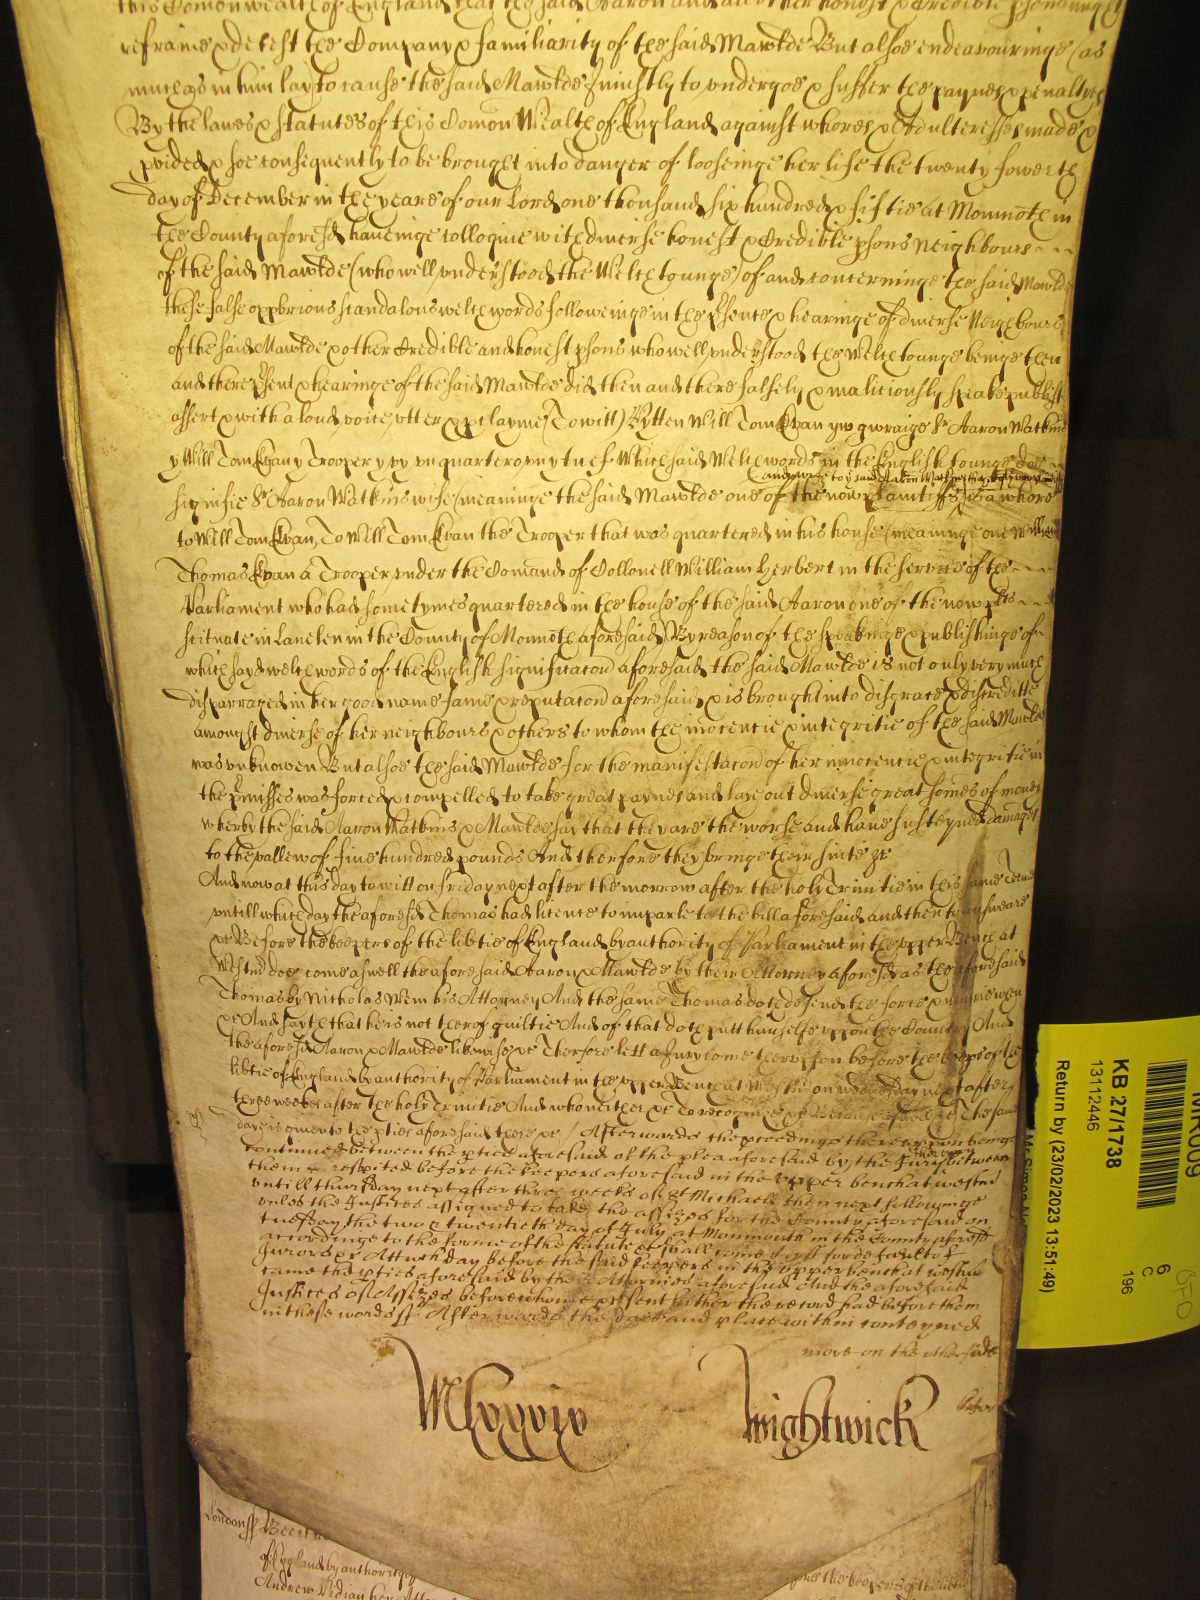 this Comonwealth of England that the said Aaron and all other honest & Credible psons might
refraine & detest the Company & familiarity of the said Mawlde But alsoe endeavouringe (as
much as in him lay) to cause the said Mawlde uniustly to undergoe & suffer the paynes & penaltyes
By the lawes & statutes of this Comon Wealth of England against whores & Adulteresses made &
pvided & soe consequently to be brought into danger of looseinge her life the twenty fowerth
day of December in the yeare of our Lord one thousand six hundred & fiftie at Monmoth in
the County aforesd haveinge colloquie with diverse honest & Credible psons Neighbours
of the said Mawlde (who well understood the Welch tounge) of and concerninge the said Mawlde
these false opprobrious scandalous welch words followeinge in the psence & hearinge of diverse Neighbours
of the said Mawlde & other Credible and honest psons who well understood the Welch tounge beinge then
and there psent & hearinge of the said Mawlde did then and there falsely & maliciously speake publish
assert & with a loud voice utter & pclayme (To witt) Pytten Will Tom Evan yw gwraige Sr Aaron Watkins
y Will Tom Evan y Trooper y yn quarter Which said Welch words in the English tounge doe
signifie Sr Aaron Watkins wife (meaninge the said Mawlde one of the now plaintiffs is a whore
to Will Tom Evan, To Will Tom Evan the Trooper that was quartered in his house (meaninge one William
Thomas Evan a Trooper under the Comand of Collonell William Herbert in the service of the
Parliament who had sometymes quartered in the house of the said Aaron one of the now plts
scituate in Lanelen in the County of Monmoth aforesaid) By reason of the speakinge & publishinge of
which sayd welch words of the English significacon aforesaid the said Mawlde is not only very much
disparraged in her good name fame & reputacon aforesaid & is brought into disgrace & discreditte
amongst diverse of her neighbours & others to whom the inocencie & integritie of the said Mawlde
was unknowen But alsoe the said Mawlde for the manifestacon of her innocencie & integritie in
the pmisses was forced & compelled to take great paynes and lay out diverse great somes of money
wherby the said Aaron Watkins & Mawlde say that they are the worse and have susteyned damages
to the vallew of five hundred pounds And therfore they bringe their suite &c
And now at this day to witt on Friday next after the morrow after the holy Trinitie in this same Terme
untill which day the aforesd Thomas had licence to imparle to the bill aforesaid and then to answeare
&c Before the keepers of the libtie of England by authority of Parliament in the upper Bench at
Westmr doe come aswell the aforesaid Aaron & Mawlde by their Attorney aforesd as the aforesaid
Thomas by Nicholas Mem his Attorney And the same Thomas doth defend the force & iniurie when
&c And sayth that he is not therof guiltie And of that doth putt himselfe uppon the Country And
the aforesd Aaron & Mawlde likewise &c Therfore lett a Jury come theruppon before the keeps of the
libtie of England by authority of Parliament in the upper Bench at Westmr on wednesday next after
three weekes after the holy Trinitie And who neither &c To recognize &c Because aswell &c The same
day is given to the pties aforesaid there &c / Afterwards the pceedings thereuppon beinge
continued betweene the pties aforesaid of the plea aforesaid by the Jury betweene
them & respited before the keepers aforesaid in the upper bench at westmr
untill thursday next after three weekes of St Michaell then next followinge
unles the Justices assigned to take the assizes for the County aforesaid on
tuesday the two & twentieth day of July at Monmouth in the County aforesd
accordinge to the forme of the statute &c shall come first for defaulte of
Jurors &c Att which day before the said keepers in the upper bench at westmr
came the pties aforesaid by their Attornies aforesaid And the aforesaid
Justices of Assizes before whome &c sent hither the record had before them
in these words ss Afterwards the day and place within conteyned
more on the other side
Mlxxxix Wightwick
before
London ss Be it
of England by authority
Andrew Vidian her Att
before the keepers of the libtie
KB 27/1738
13112446
Return by (23/02/2023 13:51:49)
196
C
6